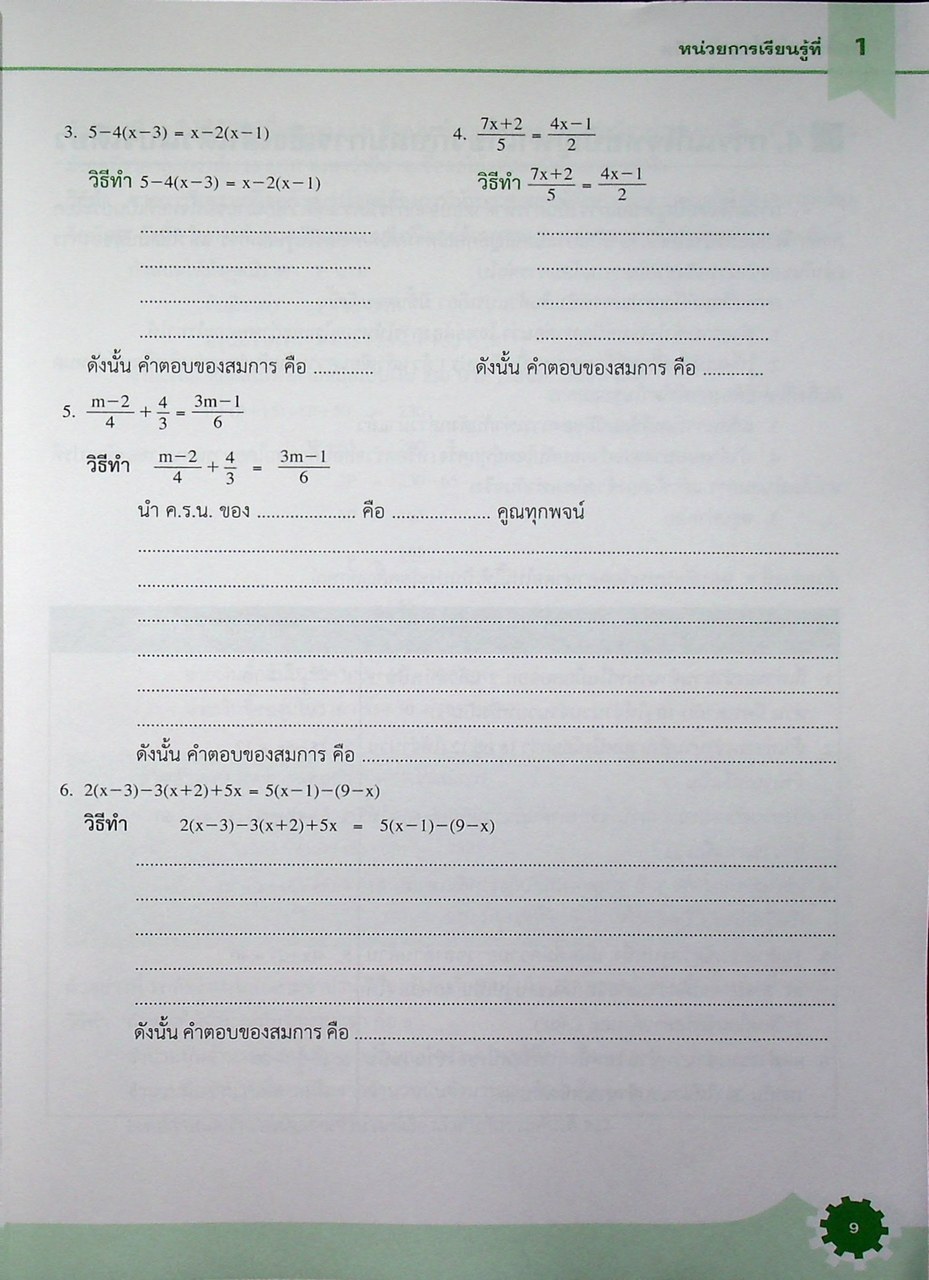 หน่วยการเรียนรู้ที่ 1
3. 5−4(x−3) = x−2(x−1)
วิธีทำ 5−4(x−3) = x−2(x−1)
ดังนั้น คำตอบของสมการ คือ ............
4. (7x+2)/5 = (4x−1)/2
วิธีทำ (7x+2)/5 = (4x−1)/2
ดังนั้น คำตอบของสมการ คือ ............
5. (m−2)/4 + 4/3 = (3m−1)/6
วิธีทำ (m−2)/4 + 4/3 = (3m−1)/6
นำ ค.ร.น. ของ .................... คือ .................... คูณทุกพจน์
ดังนั้น คำตอบของสมการ คือ ............
6. 2(x−3)−3(x+2)+5x = 5(x−1)−(9−x)
วิธีทำ 2(x−3)−3(x+2)+5x = 5(x−1)−(9−x)
ดังนั้น คำตอบของสมการ คือ ............
9